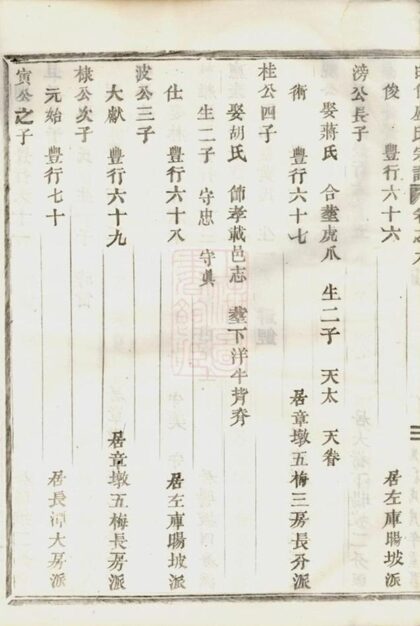 俊 豐行六十六 居左庫暘坡派
娶蔣氏 合塟虎爪 生二子 天太 天眷
滂公長子
術 豐行六十七 居章墩五梅三房長分派
桂公四子
娶胡氏 節孝載邑志 塟下洋牛背夯
仕 豐行六十八 居左庫暘坡派
生二子 守忠 守眞
波公三子
大獻 豐行六十九 居章墩五梅長房派
棣公次子
元始 豐行七十 居長潭大房派
寅公之子